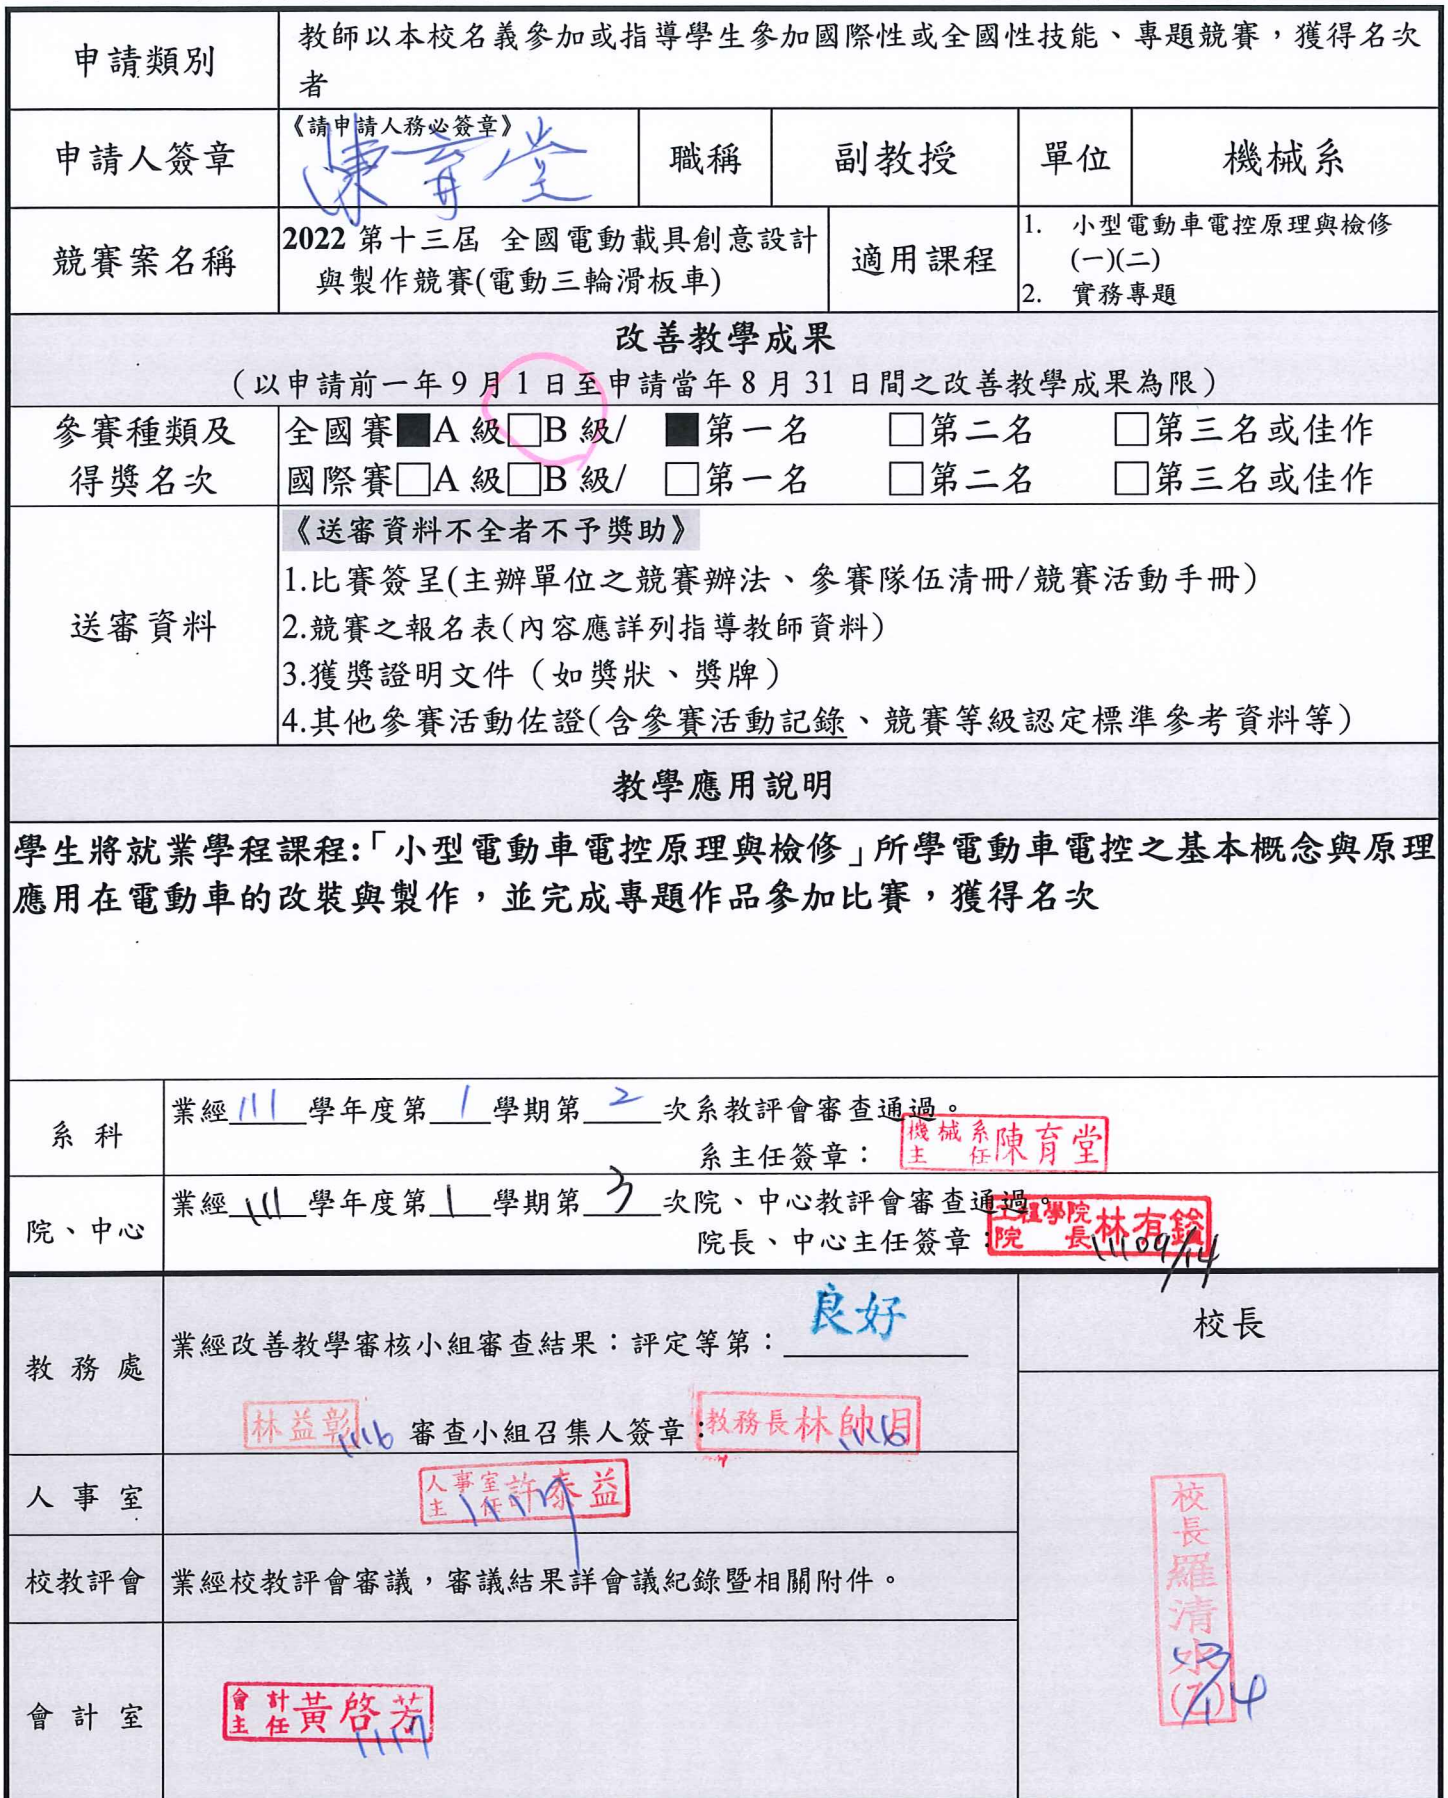 申請類別
教師以本校名義參加或指導學生參加國際性或全國性技能、專題競賽，獲得名次
者
申請人簽章
《請申請人務必簽章》
陳育堂
職稱
副教授
單位
機械系
競賽案名稱
2022 第十三屆 全國電動載具創意設計
與製作競賽(電動三輪滑板車)
適用課程
1. 小型電動車電控原理與檢修
(一)(二)
2. 實務專題
改善教學成果
（以申請前一年 9 月 1 日至申請當年 8 月 31 日間之改善教學成果為限）
參賽種類及
得獎名次
全國賽■A 級□B 級/ ■第一名 □第二名 □第三名或佳作
國際賽□A 級□B 級/ □第一名 □第二名 □第三名或佳作
送審資料
《送審資料不全者不予獎助》
1.比賽簽呈(主辦單位之競賽辦法、參賽隊伍清冊/競賽活動手冊)
2.競賽之報名表(內容應詳列指導教師資料)
3.獲獎證明文件（如獎狀、獎牌）
4.其他參賽活動佐證(含參賽活動記錄、競賽等級認定標準參考資料等)
教學應用說明
學生將就業學程課程:「小型電動車電控原理與檢修」所學電動車電控之基本概念與原理
應用在電動車的改裝與製作，並完成專題作品參加比賽，獲得名次
系科
業經 111 學年度第 1 學期第 2 次系教評會審查通過。
系主任簽章：
機械系主任 陳育堂
院、中心
業經 111 學年度第 1 學期第 3 次院、中心教評會審查通過。
院長、中心主任簽章：
工程學院院長 林有鎰
11109/14
教務處
業經改善教學審核小組審查結果：評定等第：良好
林益彰
1116
審查小組召集人簽章：
教務長林帥月
1116
校長
人事室
人事室主任 許泰益
1117
校教評會
業經校教評會審議，審議結果詳會議紀錄暨相關附件。
會計室
會計主任 黃啓芳
1117
校長羅清水(乙)